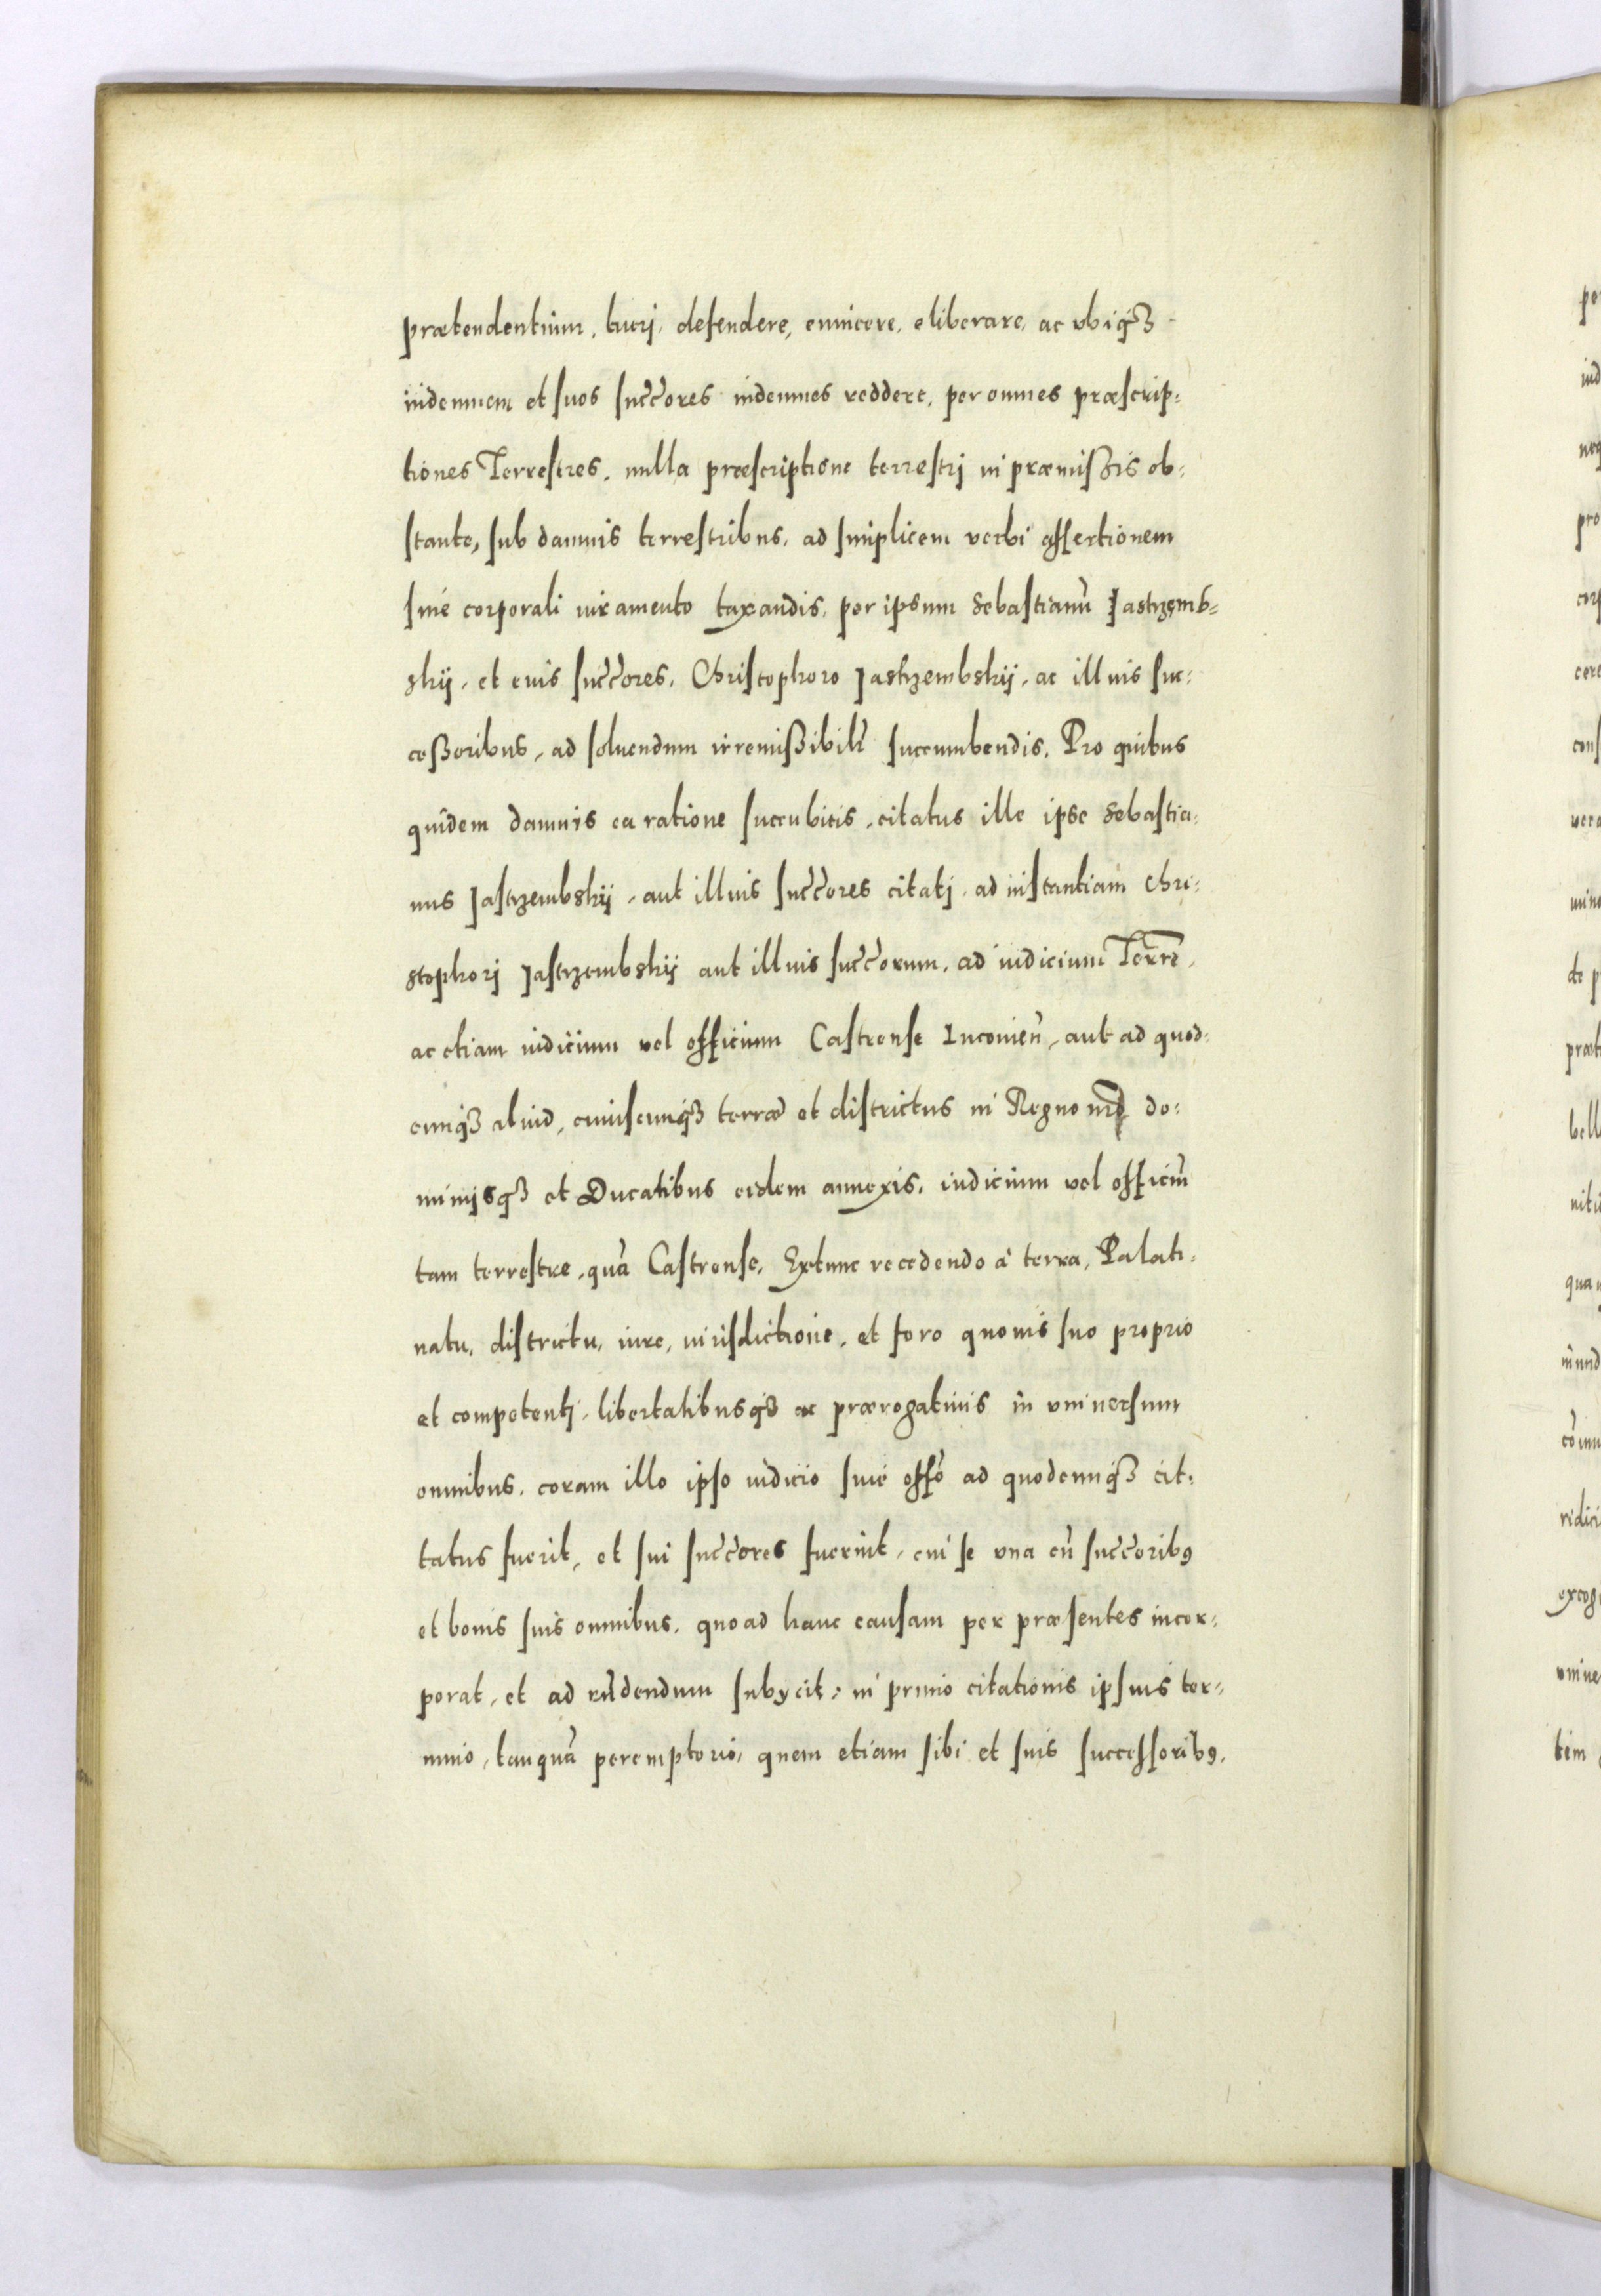 prætendentium, tueri, defendere, euincere, eliberare, ac vbiq́ꝫ
indemnem et suos succ̃ores indemnes reddere, per omnes præscrip=
tiones Terrestres, nulla præscriptione terrestrj in præmißis ob=
stante, sub damnis terrestribus, ad simplicem verbi assertionem
sine corporali iuramento taxandis, per ipsum Sebastianũ Jastrzemb=
skij, et euis succ̃ores, Christophoro Jastrzembskij, ac illius suc=
ceßoribus, ad soluendum irremißibilr̃ succumbendis. Pro quibus
quidem damnis ea ratione succubitis, citatus ille ipse Sebastia=
nus Jastrzembskij, aut illius succ̃ores citatj, ad instantiam Chri=
stophorj Jastrzembskij aut illius succ̃orum, ad iudicium Terrẽ,
ac etiam iudicium vel officium Castrense Inconieñ, aut ad quod=
cunq́ꝫ aliud, cuiuscunq́ꝫ terræ et districtus in Regno do=
minijsq́ꝫ et Ducatibus eidem annexis, iudicium vel officiũ
tam terrestre, quã Castrense, Extunc recedendo à terra, Palati=
natu, districtu, iure, iurisdictione, et foro quouis suo proprio
et competentj, libertatibusq́ꝫ ac prærogatiuis in vniuersum
omnibus, coram illo ipso iudicio siue offõ ad quodcunq́ꝫ cit=
tatus fuerit, et sui succ̃ores fuerint, cui se vna cũ succ̃oribꝰ
et bonis suis omnibus, quoad hanc causam per præsentes incor=
porat, et ad rñdendum subycit, in primo citationis ipsius ter=
mino, tanquã peremptorio, quem etiam sibi et suis successoribꝰ,